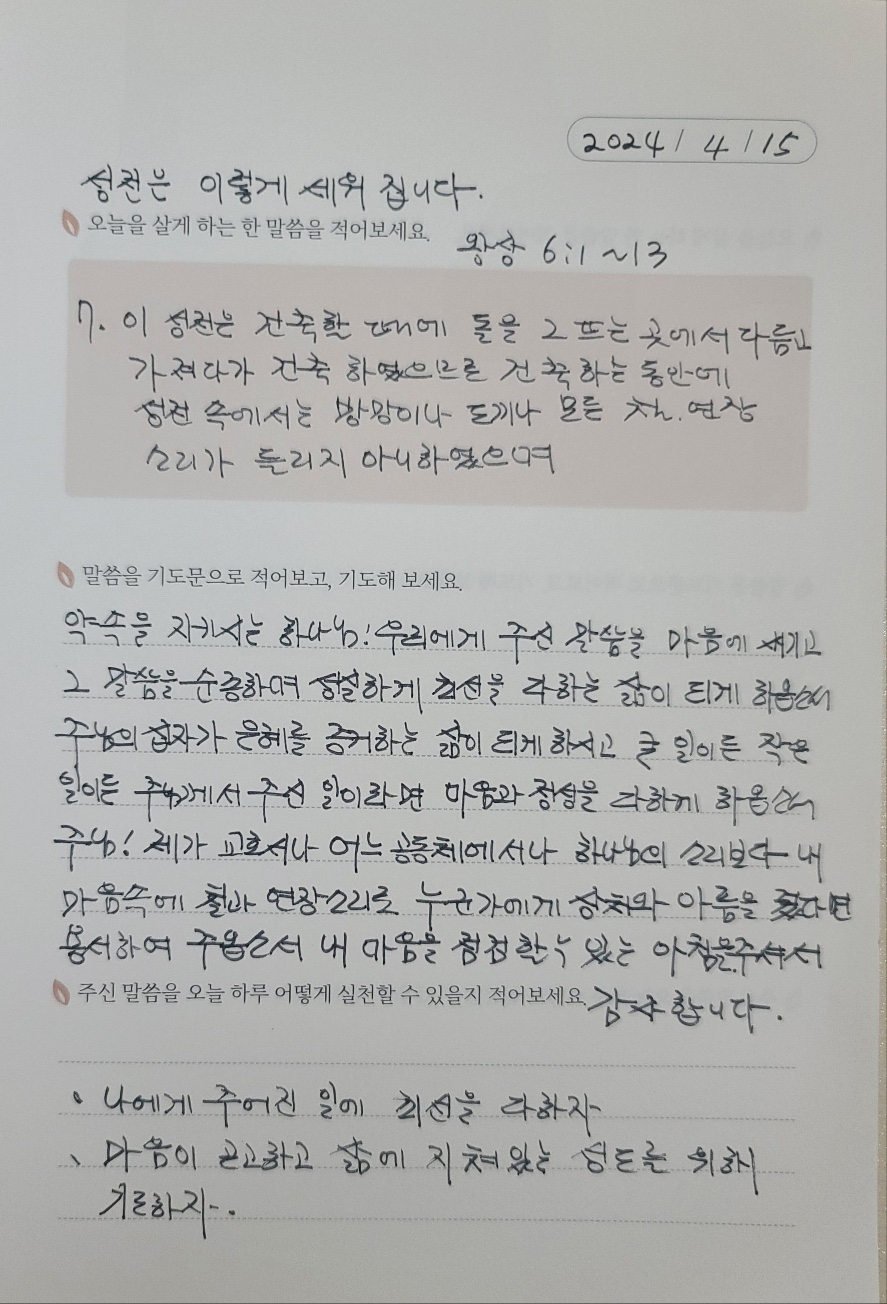 2024 / 4 / 15
성전은 이렇게 세워 집니다.
오늘을 살게 하는 한 말씀을 적어보세요.
왕상 6:1~13
7. 이 성전은 건축할 때에 돌을 그 뜨는 곳에서 다듬고
가져다가 건축 하였으므로 건축하는 동안에
성전 속에서는 방망이나 도끼나 모든 철.연장
소리가 들리지 아니하였으며
말씀을 기도문으로 적어보고, 기도해 보세요.
약속을 지키시는 하나님! 우리에게 주신 말씀을 마음에 새기고
그 말씀을 순종하며 성실하게 최선을 다하는 삶이 되게 하옵소서
주님의 십자가 은혜를 증거하는 삶이 되게 하시고 큰 일이든 작은
일이든 주님께서 주신 일이라면 마음과 정성을 다하게 하옵소서
주님! 제가 교회서나 어느 공동체에서나 하나님의 소리보다 내
마음속에 철과 연장소리로 누군가에게 상처와 아픔을 줬다면
용서하여 주옵소서 내 마음을 점검할 수 있는 아침을 주셔서
주신 말씀을 오늘 하루 어떻게 실천할 수 있을지 적어보세요.
감사 합니다.
· 나에게 주어진 일에 최선을 다하자
、 마음이 곤고하고 삶에 지쳐있는 성도를 위해
기도하자.